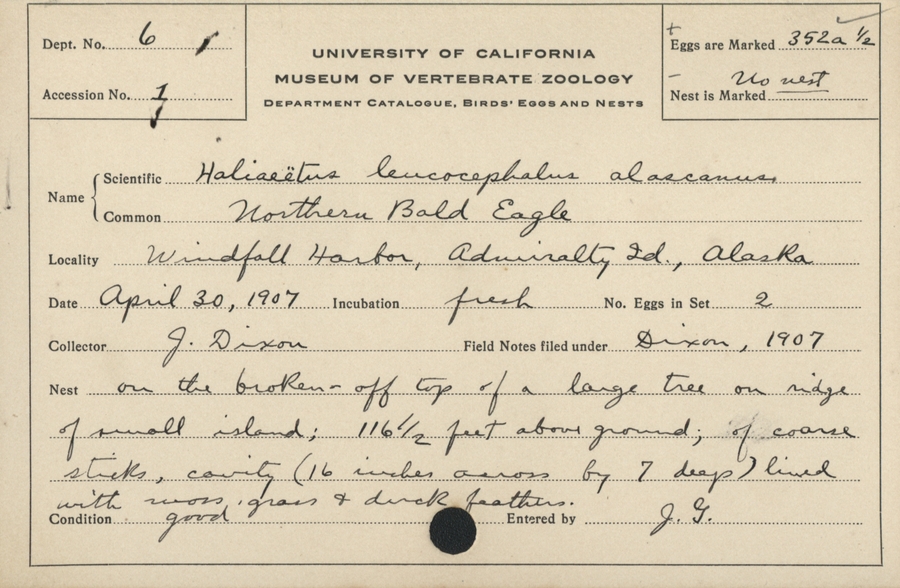 Dept. No. 6
Accession No. 1
UNIVERSITY OF CALIFORNIA
MUSEUM OF VERTEBRATE ZOOLOGY
DEPARTMENT CATALOGUE, BIRDS' EGGS AND NESTS
+
Eggs are Marked 352a 1/2
-
Nest is Marked No nest
Name
Scientific Haliaeëtus leucocephalus alascanus
Common Northern Bald Eagle
Locality Windfall Harbor, Admiralty Id., Alaska
Date April 30, 1907 Incubation fresh No. Eggs in Set 2
Collector J. Dixon Field Notes filed under Dixon, 1907
Nest on the broken-off top of a large tree on ridge
of small island; 116 1/2 feet above ground; of coarse
sticks, cavity (16 inches across by 7 deep) lined
with moss, grass & duck feathers.
Condition good Entered by J. G.